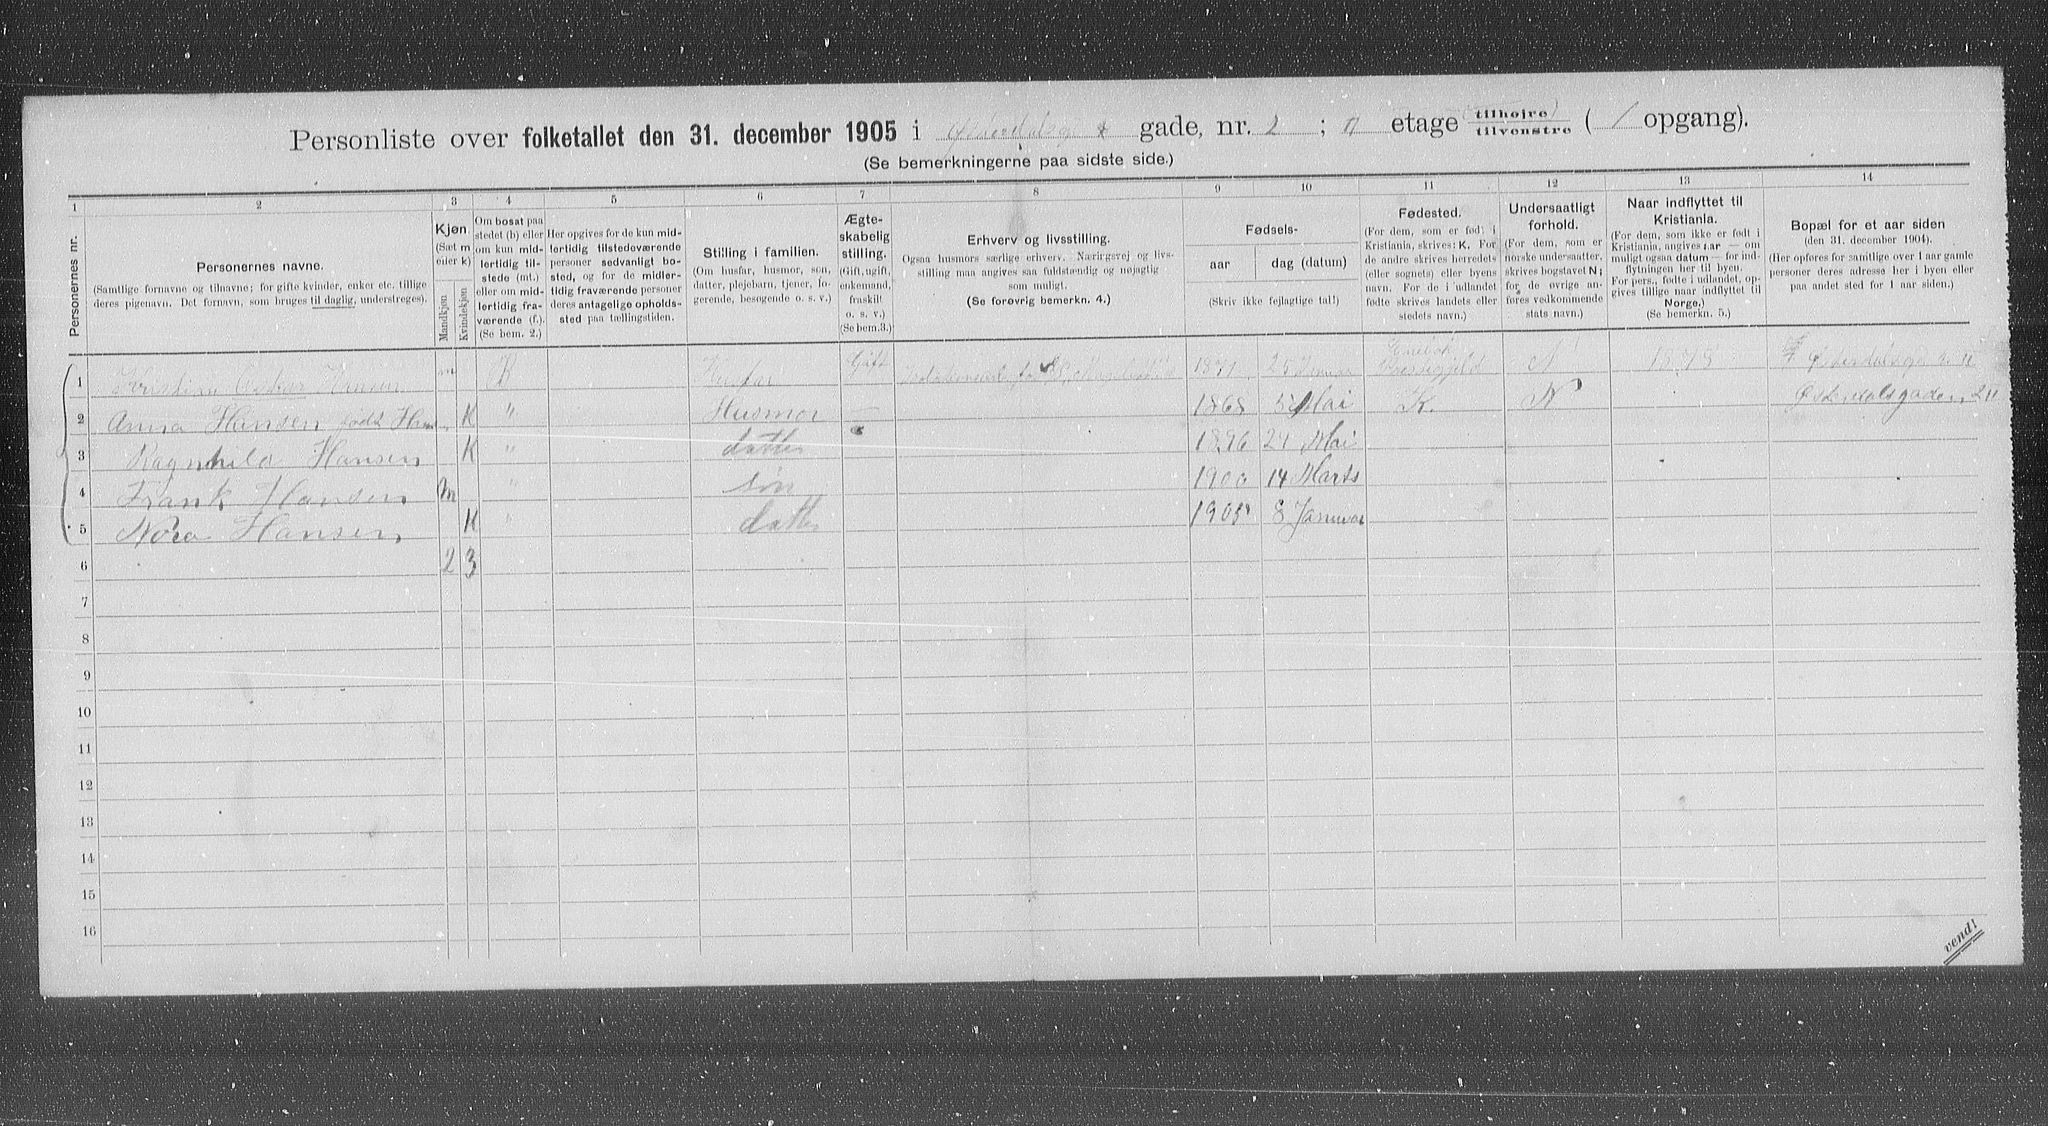 Personliste over folketallet den 31. december 1905 i gade, nr. 2 ; II etage tilhøjre / tilvenstre ( / opgang).
(Se bemerkningerne paa sidste side.)
1 2 3 4 5 6 7 8 9 10 11 12 13 14
Personernes nr.
Personernes navne.
(Samtlige fornavne og tilnavne; for gifte kvinder, enker etc. tillige deres pigenavn. Det fornavn, som bruges til daglig, understreges).
Kjøn
(Sæt m eller k)
Mandkjøn
Kvindekjøn
Om bosat paa stedet (b) eller om kun midlertidig tilstede (mt.) eller om midlertidig fraværende (f.). (Se bem. 2.)
Her opgives for de kun midlertidig tilstedeværende personer sedvanligt bosted, og for de midlertidig fraværende personer deres antagelige opholdssted paa tællingstiden.
Stilling i familien.
(Om husfar, husmor, søn, datter, plejebarn, tjener, logerende, besøgende o. s. v.)
Ægteskabelig stilling.
(Gift, ugift, enkemand, fraskilt o. s. v.) (Se bem.3.)
Erhverv og livsstilling.
Ogsaa husmors særlige erhverv. Næringsvej og livsstilling maa angives saa fuldstændig og nøjagtig som muligt.
(Se forøvrig bemerkn. 4.)
Fødsels-
aar
dag (datum)
(Skriv ikke fejlagtige tal!)
Fødested.
(For dem, som er født i Kristiania, skrives: K. For de andre skrives herredets (eller sognets) eller byens navn. For de i udlandet fødte skrives landets eller stedets navn.)
Undersaatligt forhold.
(For dem, som er norske undersaatter, skrives bogstavet N; for de øvrige anføres vedkommende stats navn.)
Naar indflyttet til Kristiania.
(For dem, som ikke er født i Kristiania, angives aar — om muligt ogsaa datum — for indflytningen her til byen. For pers., fødte i udlandet, opgives tillige naar indflyttet til Norge.)
(Se bemerkn. 5.)
Bopæl for et aar siden
(den 31. december 1904).
(Her opføres for samtlige over 1 aar gamle personer deres adresse her i byen eller paa andet sted for 1 aar siden.)
1 Hansen m B Husfar Gift 1871 25 Januar Enebak N 1878
2 Anna Hansen født K " Husmor 1868 5 Mai K. N Østerdalsgaden 2 II
3 Ragnhild Hansen K " datter 1896 Mai
4 Frank Hansen m " søn 1900 14 Marts
5 Nora Hansen K " datter 1905 8 Januar
6 2 3
7
8
9
10
11
12
13
14
15
16
vend!